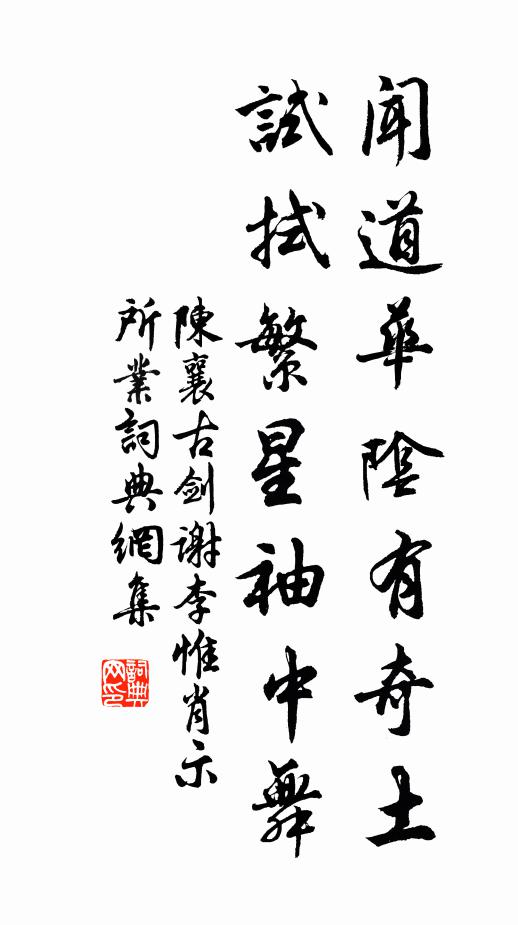 聞道華陰有奇土
試拭繁星袖中舞
陳襄古劍謝李惟肖示
所業詞典網集
詞典网印